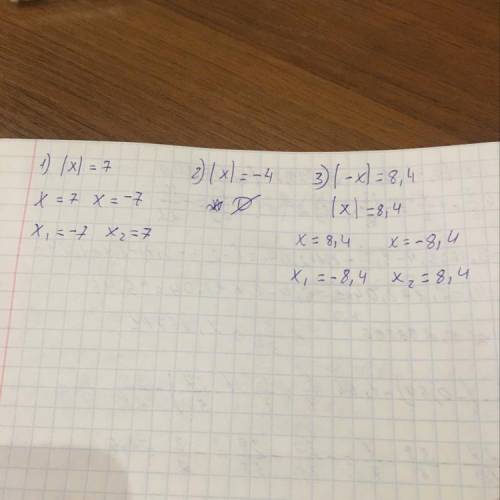 1) |x| = 7
x = 7 x = -7
x₁ = -7 x₂ = 7
2) |x| = -4
∅
3) |-x| = 8,4
|x| = 8,4
x = 8,4 x = -8,4
x₁ = -8,4 x₂ = 8,4